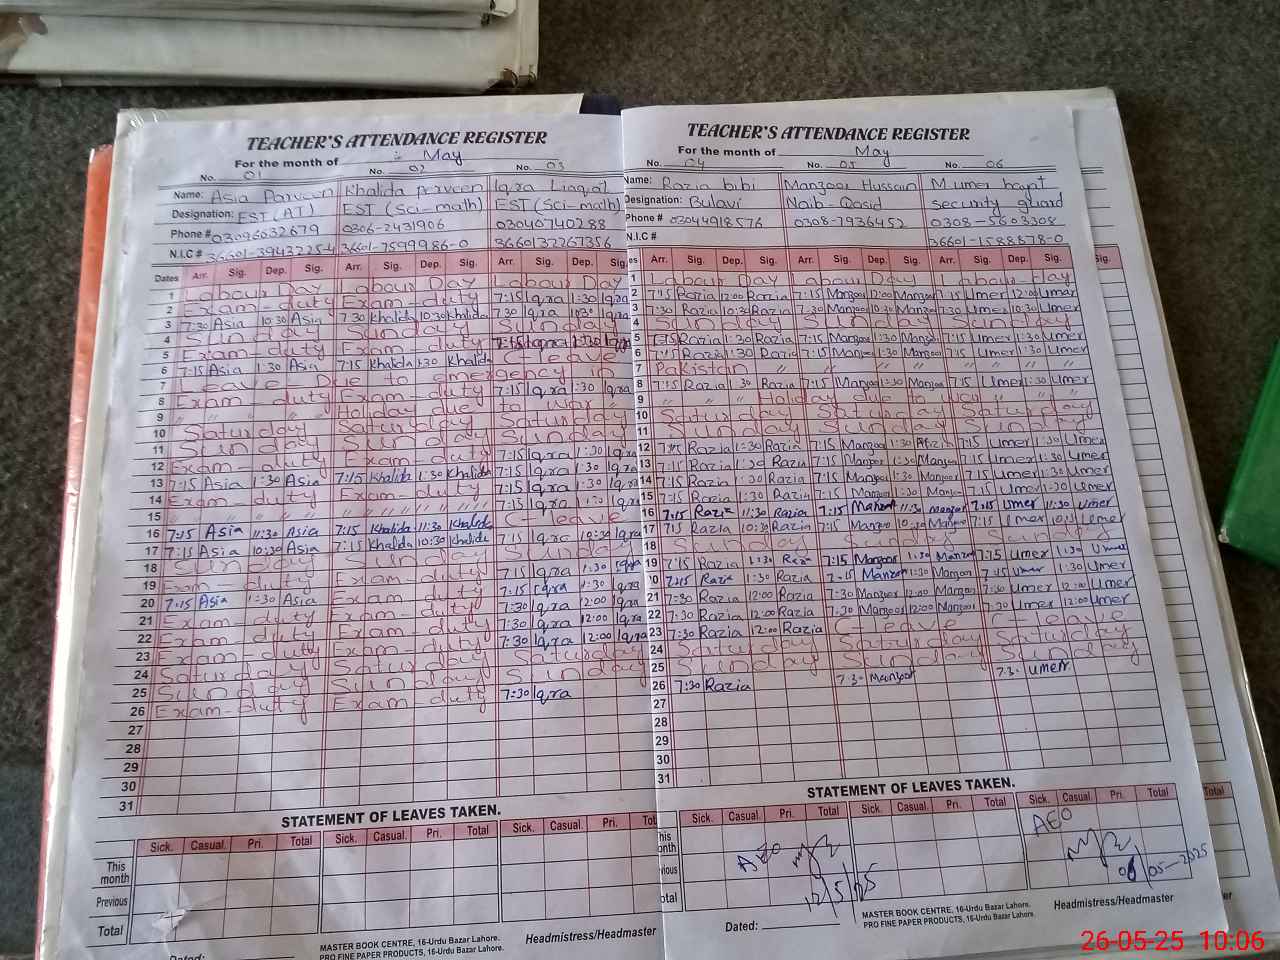 TEACHER'S ATTENDANCE REGISTER
For the month of May
No. 01 No. 02 No. 03
Name: Asia Parveen Khalida parveen Iqra Liaqat
Designation: EST (AT) EST (Sci-math) EST (Sci-math)
Phone # 03096032679 0306-2431906 03040740288
N.I.C # 36601-3943225-4 36601-7599986-0 3660132267356
Dates Arr. Sig. Dep. Sig. Arr. Sig. Dep. Sig. Arr. Sig. Dep. Sig.
1 Labour Day Labour Day Labour Day
2 Exam-duty Exam-duty 7:15 Iqra 1:30 Iqra
3 7:30 Asia 10:30 Asia 7:30 Khalida 10:30 Khalida 7:30 Iqra 10:30 Iqra
4 Sunday Sunday Sunday
5 Exam-duty Exam-duty 7:15 Iqra 1:30 Iqra
6 7:15 Asia 1:30 Asia 7:15 Khalida 1:30 Khalida C-leave
7 Leave-Due to emergency in
8 Exam-duty Exam-duty 7:15 Iqra 1:30 Iqra
9 " " " " Holiday due to war
10 Saturday Saturday Saturday
11 Sunday Sunday Sunday
12 Exam-duty Exam-duty 7:15 Iqra 1:30 Iqra
13 7:15 Asia 1:30 Asia 7:15 Khalida 1:30 Khalida 7:15 Iqra 1:30 Iqra
14 Exam duty Exam-duty 7:15 Iqra 1:30 Iqra
15 " " " " " " " " 7:15 Iqra 1:30 Iqra
16 7:15 Asia 11:30 Asia 7:15 Khalida 11:30 Khalida C-leave
17 7:15 Asia 10:30 Asia 7:15 Khalida 10:30 Khalida 7:15 Iqra 10:30 Iqra
18 Sunday Sunday Sunday
19 Exam-duty Exam-duty 7:15 Iqra 1:30 Iqra
20 7:15 Asia 1:30 Asia Exam-duty 7:15 Iqra 1:30 Iqra
21 Exam-duty Exam-duty 7:30 Iqra 12:00 Iqra
22 Exam-duty Exam-duty 7:30 Iqra 12:00 Iqra
23 Exam-duty Exam-duty 7:30 Iqra 12:00 Iqra
24 Saturday Saturday Saturday
25 Sunday Sunday Sunday
26 Exam-duty Exam-duty 7:30 Iqra
27
28
29
30
31
STATEMENT OF LEAVES TAKEN.
Sick. Casual. Pri. Total Sick. Casual. Pri. Total Sick. Casual. Pri. Tot
This month
Previous
Total
Dated:
MASTER BOOK CENTRE, 16-Urdu Bazar Lahore.
PRO FINE PAPER PRODUCTS, 16-Urdu Bazar Lahore.
Headmistress/Headmaster
TEACHER'S ATTENDANCE REGISTER
For the month of May
No. 04 No. 05 No. 06
Name: Razia bibi Manzoor Hussain M umer hayat
Designation: Bulavi Naib-Qasid security guard
Phone # 03044918576 0308-7936452 0308-5603308
N.I.C # 36601-1588878-0
es Arr. Sig. Dep. Sig. Arr. Sig. Dep. Sig. Arr. Sig. Dep. Sig.
1 Labour Day Labour Day Labour Day
2 7:15 Razia 12:00 Razia 7:15 Manzoor 12:00 Manzoor 7:15 Umer 12:00 Umer
3 7:30 Razia 10:30 Razia 7:30 Manzoor 10:30 Manzoor 7:30 Umer 10:30 Umer
4 Sunday Sunday Sunday
5 7:15 Razia 1:30 Razia 7:15 Manzoor 1:30 Manzoor 7:15 Umer 1:30 Umer
6 7:15 Razia 1:30 Razia 7:15 Manzoor 1:30 Manzoor 7:15 Umer 1:30 Umer
7 Pakistan " " " " " "
8 7:15 Razia 1:30 Razia 7:15 Manzoor 1:30 Manzoor 7:15 Umer 1:30 Umer
9 " " Holiday due to war " "
10 Saturday Saturday Saturday
11 Sunday Sunday Sunday
12 7:15 Razia 1:30 Razia 7:15 Manzoor 1:30 7:15 Umer 1:30 Umer
13 7:15 Razia 1:30 Razia 7:15 Manzoor 1:30 Manzoor 7:15 Umer 1:30 Umer
14 7:15 Razia 1:30 Razia 7:15 Manzoor 1:30 Manzoor 7:15 Umer 1:30 Umer
15 7:15 Razia 1:30 Razia 7:15 Manzoor 1:30 Manzoor 7:15 Umer 1:30 Umer
16 7:15 Razia 11:30 Razia 7:15 Manzoor 11:30 Manzoor 7:15 Umer 11:30 Umer
17 7:15 Razia 10:30 Razia 7:15 Manzoor 10:30 Manzoor 7:15 Umer 10:30 Umer
18 Sunday Sunday Sunday
19 7:15 Razia 1:30 Razia 7:15 Manzoor 1:30 Manzoor 7:15 Umer 1:30 Umer
20 7:15 Razia 1:30 Razia 7:15 Manzoor 1:30 Manzoor 7:15 Umer 1:30 Umer
21 7:30 Razia 12:00 Razia 7:30 Manzoor 12:00 Manzoor 7:30 Umer 12:00 Umer
22 7:30 Razia 12:00 Razia 7:30 Manzoor 12:00 Manzoor 7:30 Umer 12:00 Umer
23 7:30 Razia 12:00 Razia C-leave C-leave
24 Saturday Saturday Saturday
25 Sunday Sunday Sunday
26 7:30 Razia 7:3 Manzoor 7:3 Umer
27
28
29
30
31
STATEMENT OF LEAVES TAKEN.
Sick. Casual. Pri. Total Sick. Casual. Pri. Total Sick. Casual. Pri. Total
AEO AEO
12/5/25 05-2025
Dated:
MASTER BOOK CENTRE, 16-Urdu Bazar Lahore.
PRO FINE PAPER PRODUCTS, 16-Urdu Bazar Lahore.
Headmistress/Headmaster
Sig.
Total
26-05-25 10:06